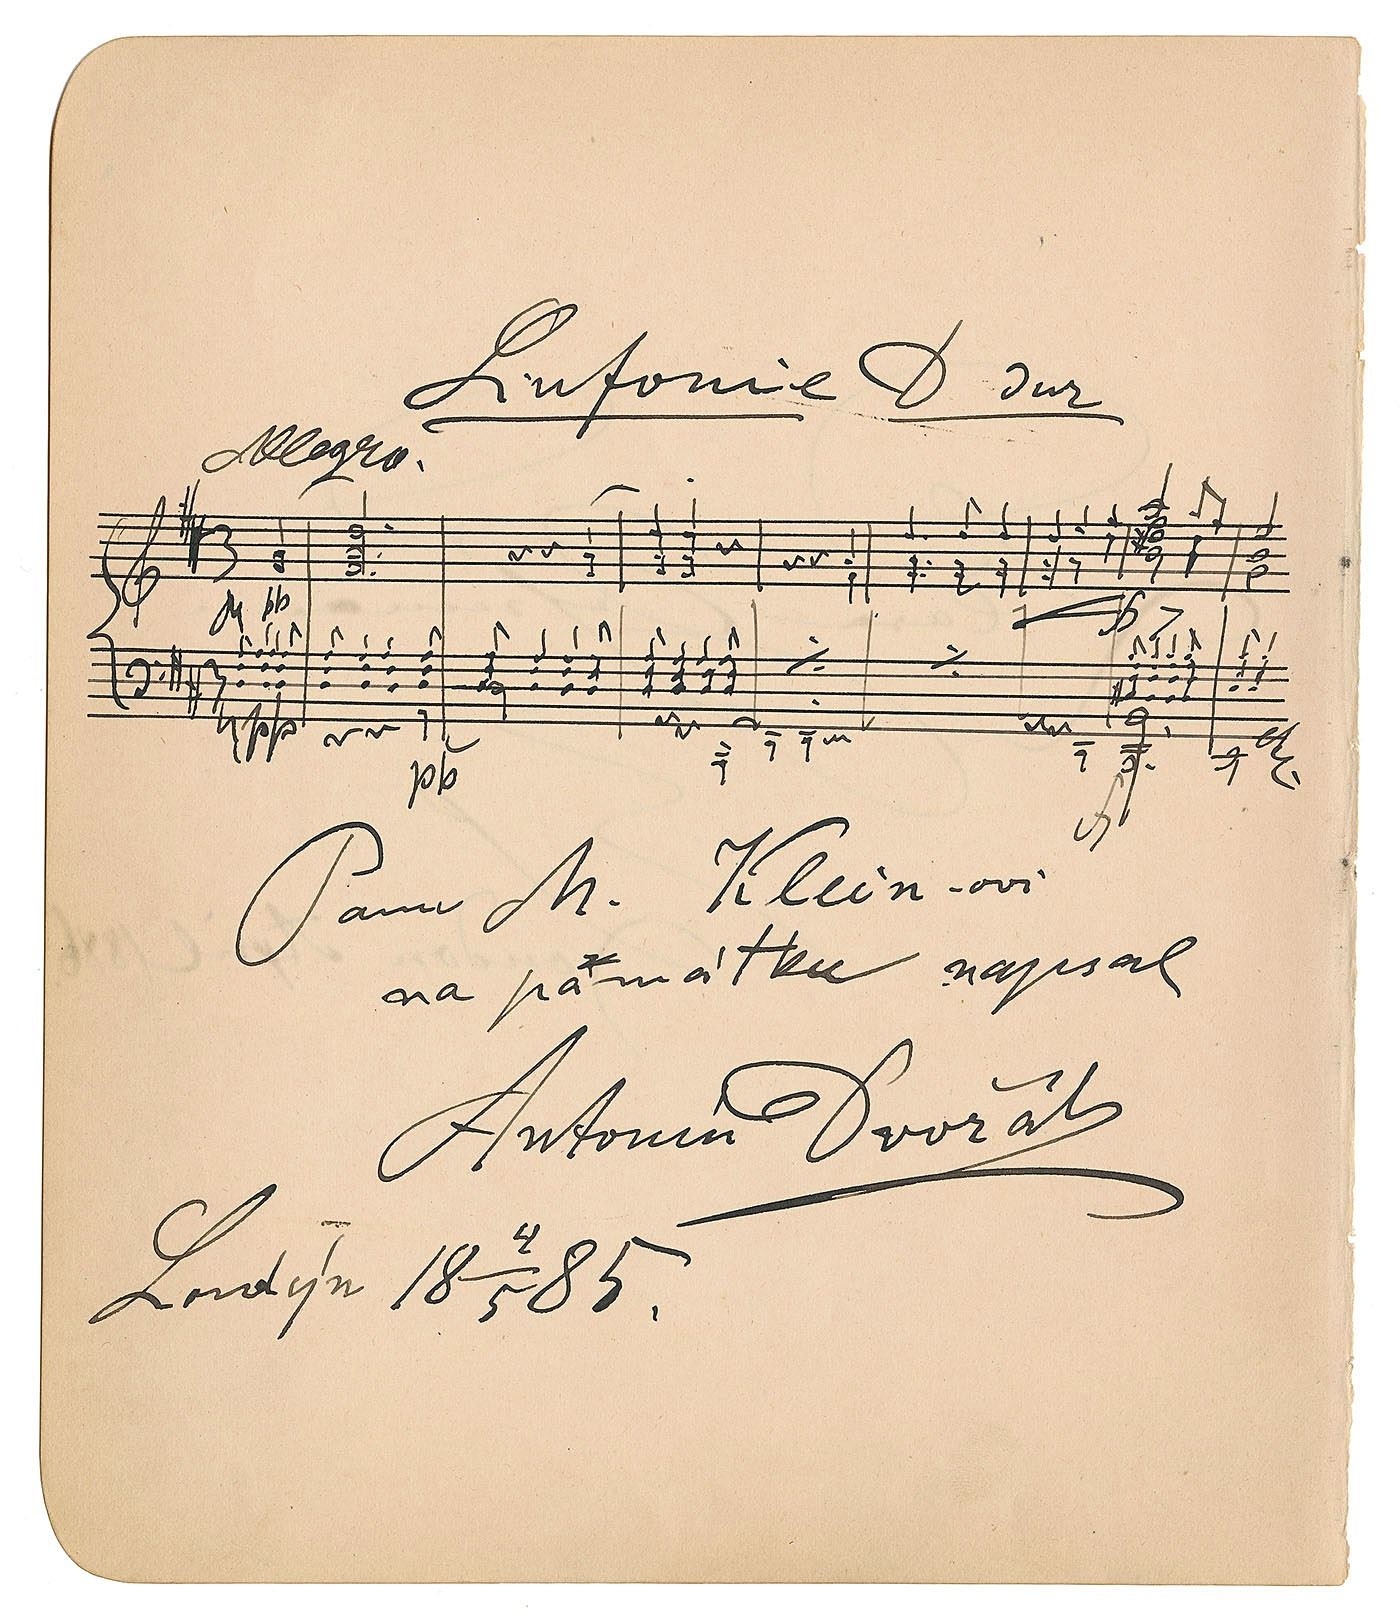 Sinfonie D dur
Allegro.
pp
pp
pp
Panu M. Klein-ovi
na pámátku napsal
Antonín Dvořák
Londýn 18 4/5 85.